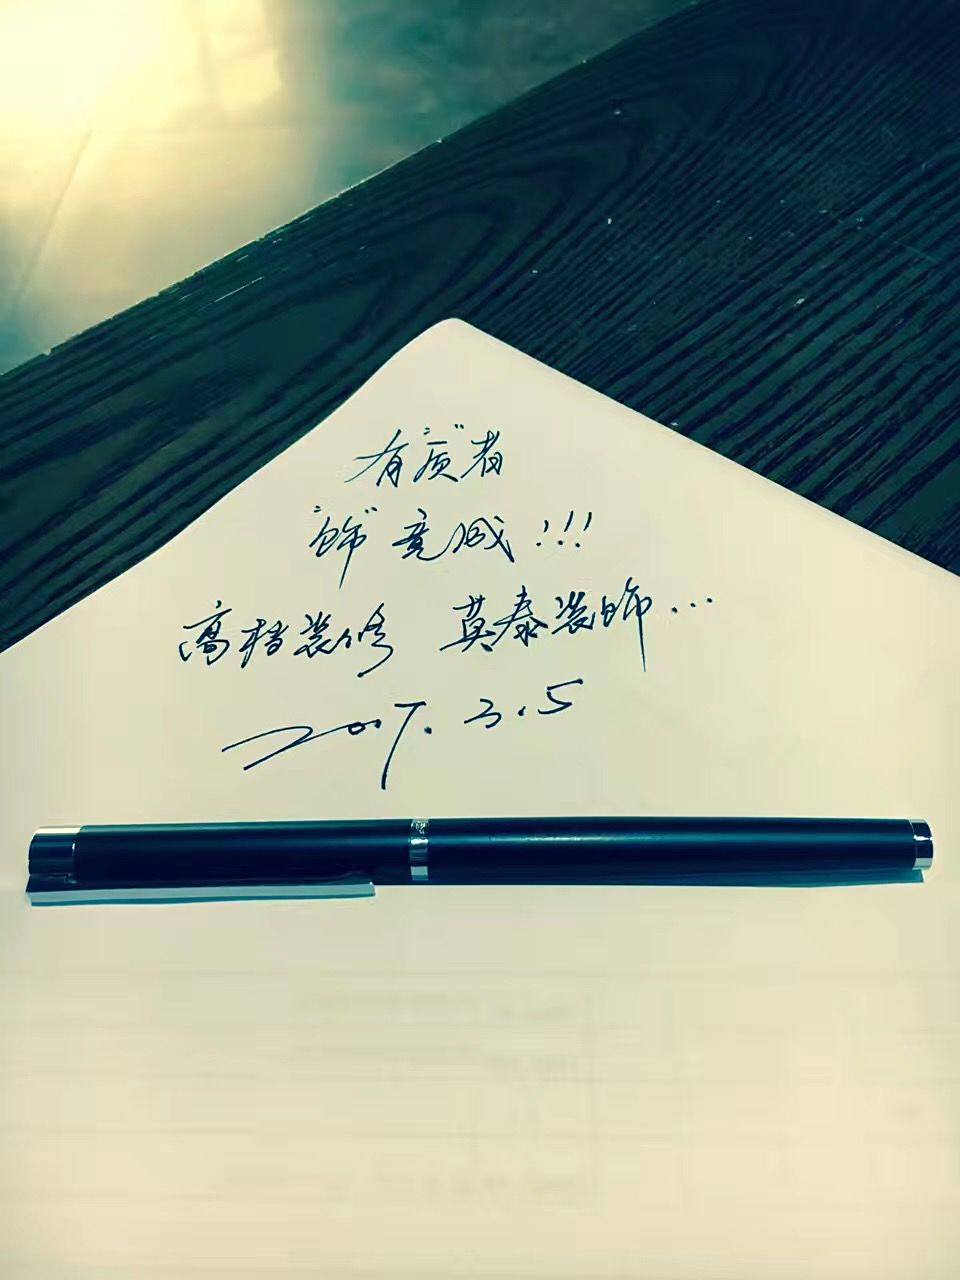 有"质"者
"饰"竟成!!!
高档装修 莫泰装饰...
2017.3.5